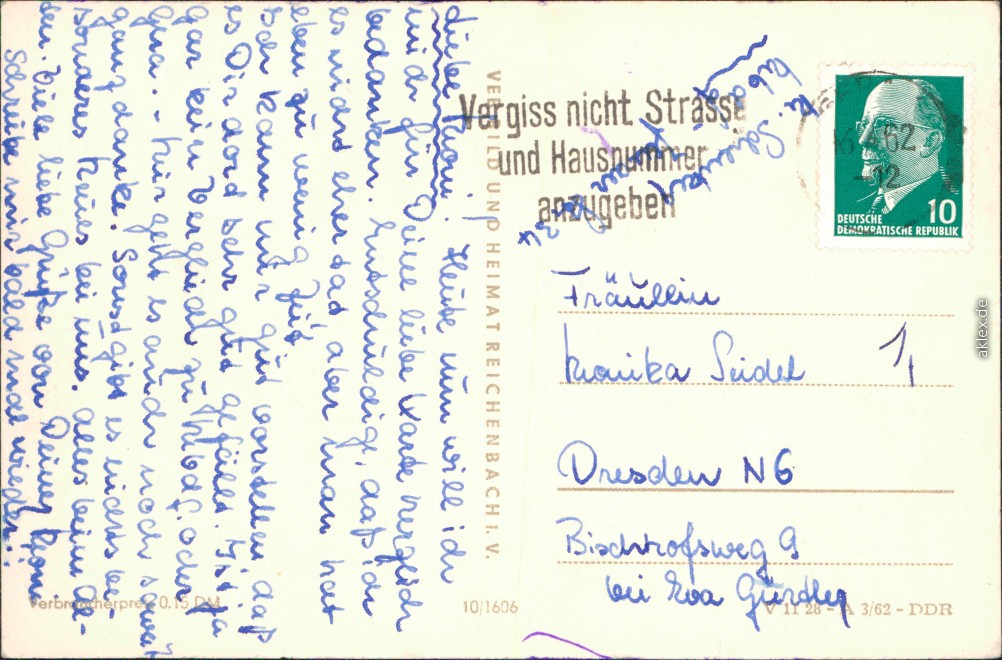 Liebe Moni! Heute nun will ich
mich für Deine liebe Karte herzlich
bedanken. Entschuldige, daß ich
es nicht eher tat, aber man hat
eben zu wenig Zeit.
Ich kann mir gut vorstellen, daß
es Dir dort sehr gut gefällt. Ist ja
gar kein Vergleich zu oder
Gera. - Mir geht es auch noch soweit
ganz danke. Sonst gibt es nichts be-
sonderes Neues bei uns. Alles beim Al-
ten. Viele liebe Grüße von Deiner
Schreibe mir bald mal wieder!
VERLAG BILD UND HEIMAT REICHENBACH I. V.
Vergiss nicht Strasse
und Hausnummer
anzugeben
16.4.62
-12
10
DEUTSCHE
DEMOKRATISCHE REPUBLIK
Fräulein
Monika Seidel
Dresden N6
Bischofsweg 9
bei Eva
Verbraucherpreis 0.15 DM
10/1606
V 11 28 - A 3/62 - DDR
aklex.de